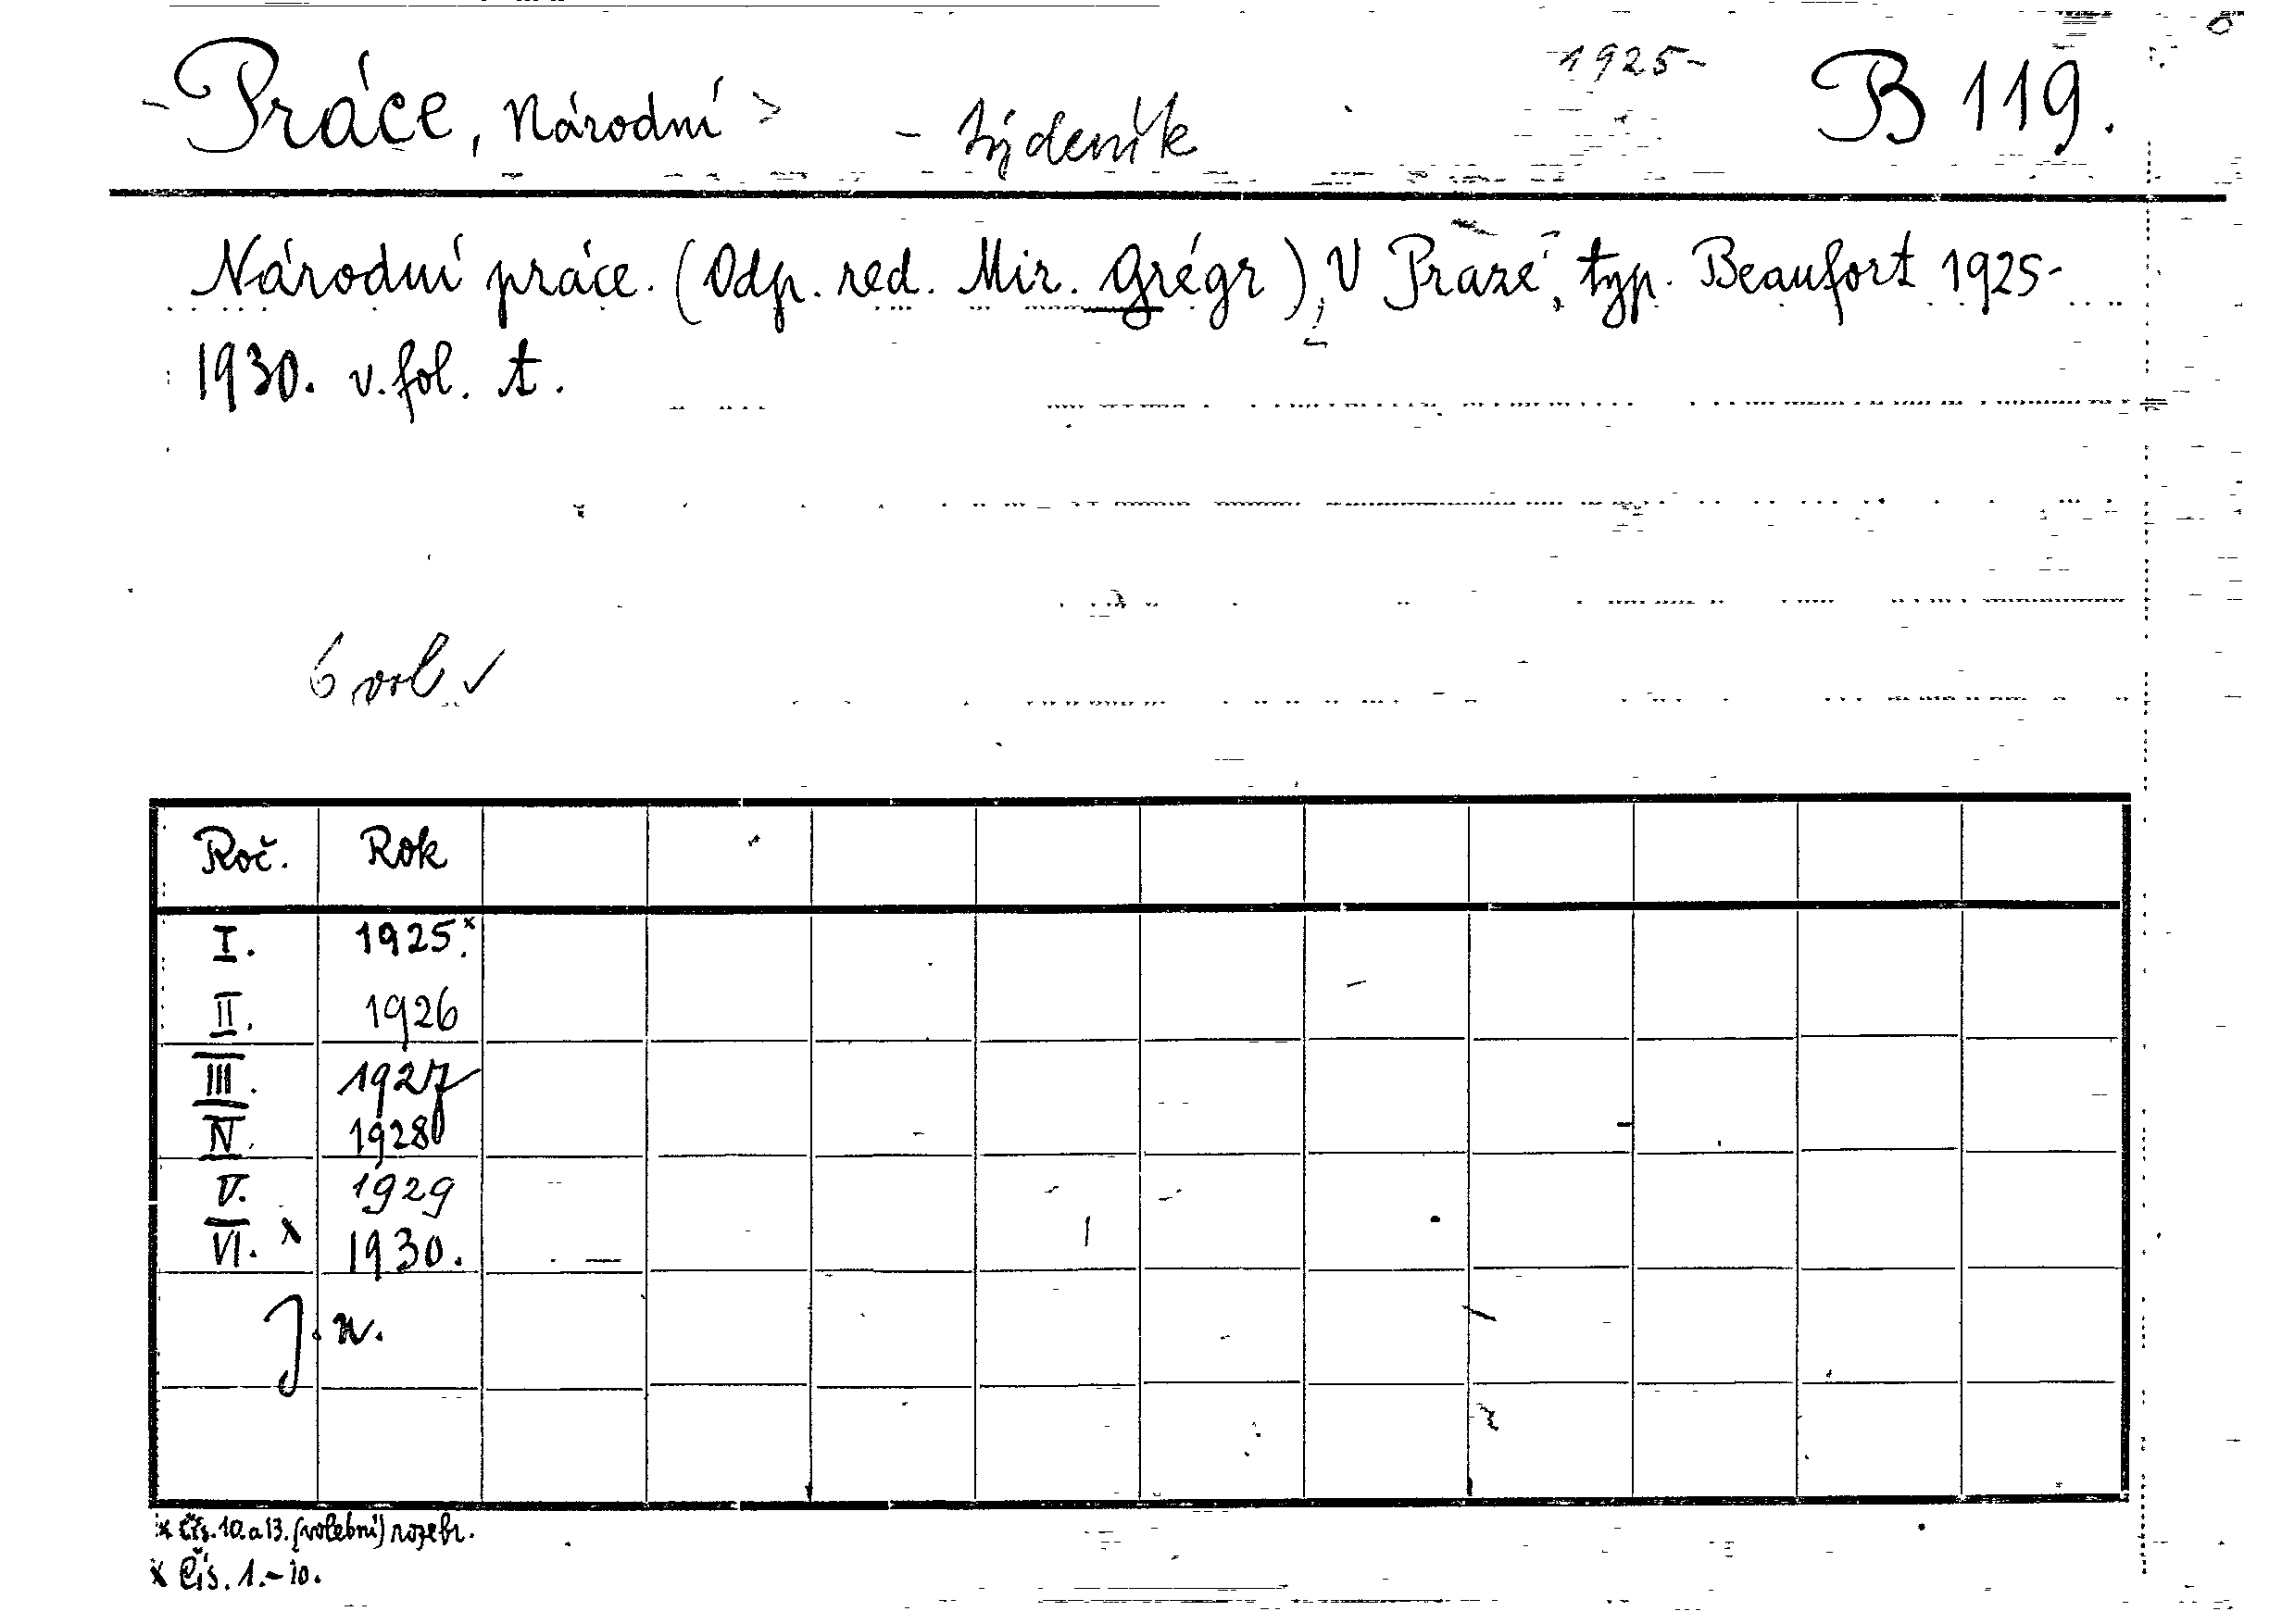 1925-
-Práce, Národní > - týdeník B 119.
Národní práce. (Odp. red. Mir. Grégr), V Praze, typ. Beaufort 1925-
1930. v. fol. t.
6 vol. ✓
Roč. Rok
I. 1925.ˣ
II. 1926
III. 1927
IV. 1928
V. 1929
VI. x 1930.
J. n.
x čís. 10. a 13. (volební) rozebr.
x Čís. 1.-10.